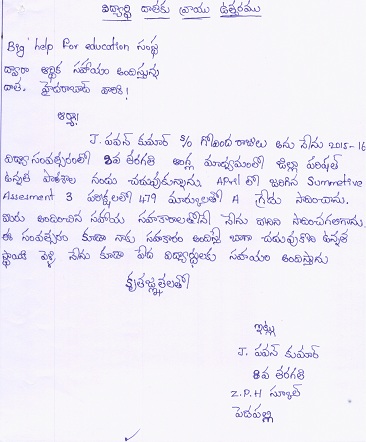 విద్యార్థి దాతకు వ్రాయు ఉత్తరము
Big help For education సంస్థ
ద్వారా ఆర్థిక సహాయం అందిస్తున్న
దాత. హైదరాబాద్ వారికి!
ఆర్యా!
J. పవన్ కుమార్ S/o గోవింద రాజులు అను నేను 2015-16
విద్యా సంవత్సరంలో 8వ తరగతి ఆంగ్ల మాధ్యమంలో జిల్లా పరిషత్
ఉన్నత పాఠశాల నందు చదువుకున్నాను. April లో జరిగిన Summetive
Assesment 3 పరీక్షలలో 479 మార్కులతో A గ్రేడు సాధించాను.
మీరు అందించిన సహాయ సహకారాలతోనే నేను సాధించగలిగాను.
ఈ సంవత్సరం కూడా నాకు సహకారం అందిస్తే బాగా చదువుకొని ఉన్నత
స్థాయికి వెళ్ళి నేను కూడా పేద విద్యార్థులకు సహాయం అందిస్తాను
కృతజ్ఞతలతో
ఇట్లు
J. పవన్ కుమార్
8వ తరగతి
Z.P.H స్కూల్
పెదపల్లి